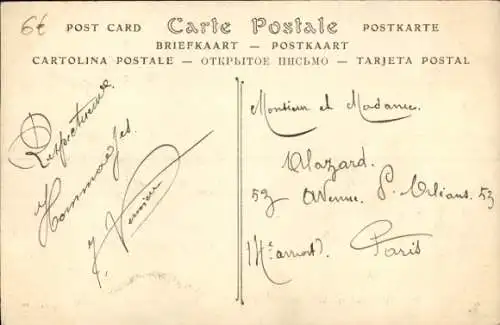 6€
POST CARD Carte Postale POSTKARTE
BRIEFKAART — POSTKAART
CARTOLINA POSTALE — ОТКРЫТОЕ ПИСЬМО — TARJETA POSTAL
Respectueux
Hommages.
Monsieur et Madame
Alazard.
53 Avenue. d. Orléans. 53
14e arrondt.
Paris